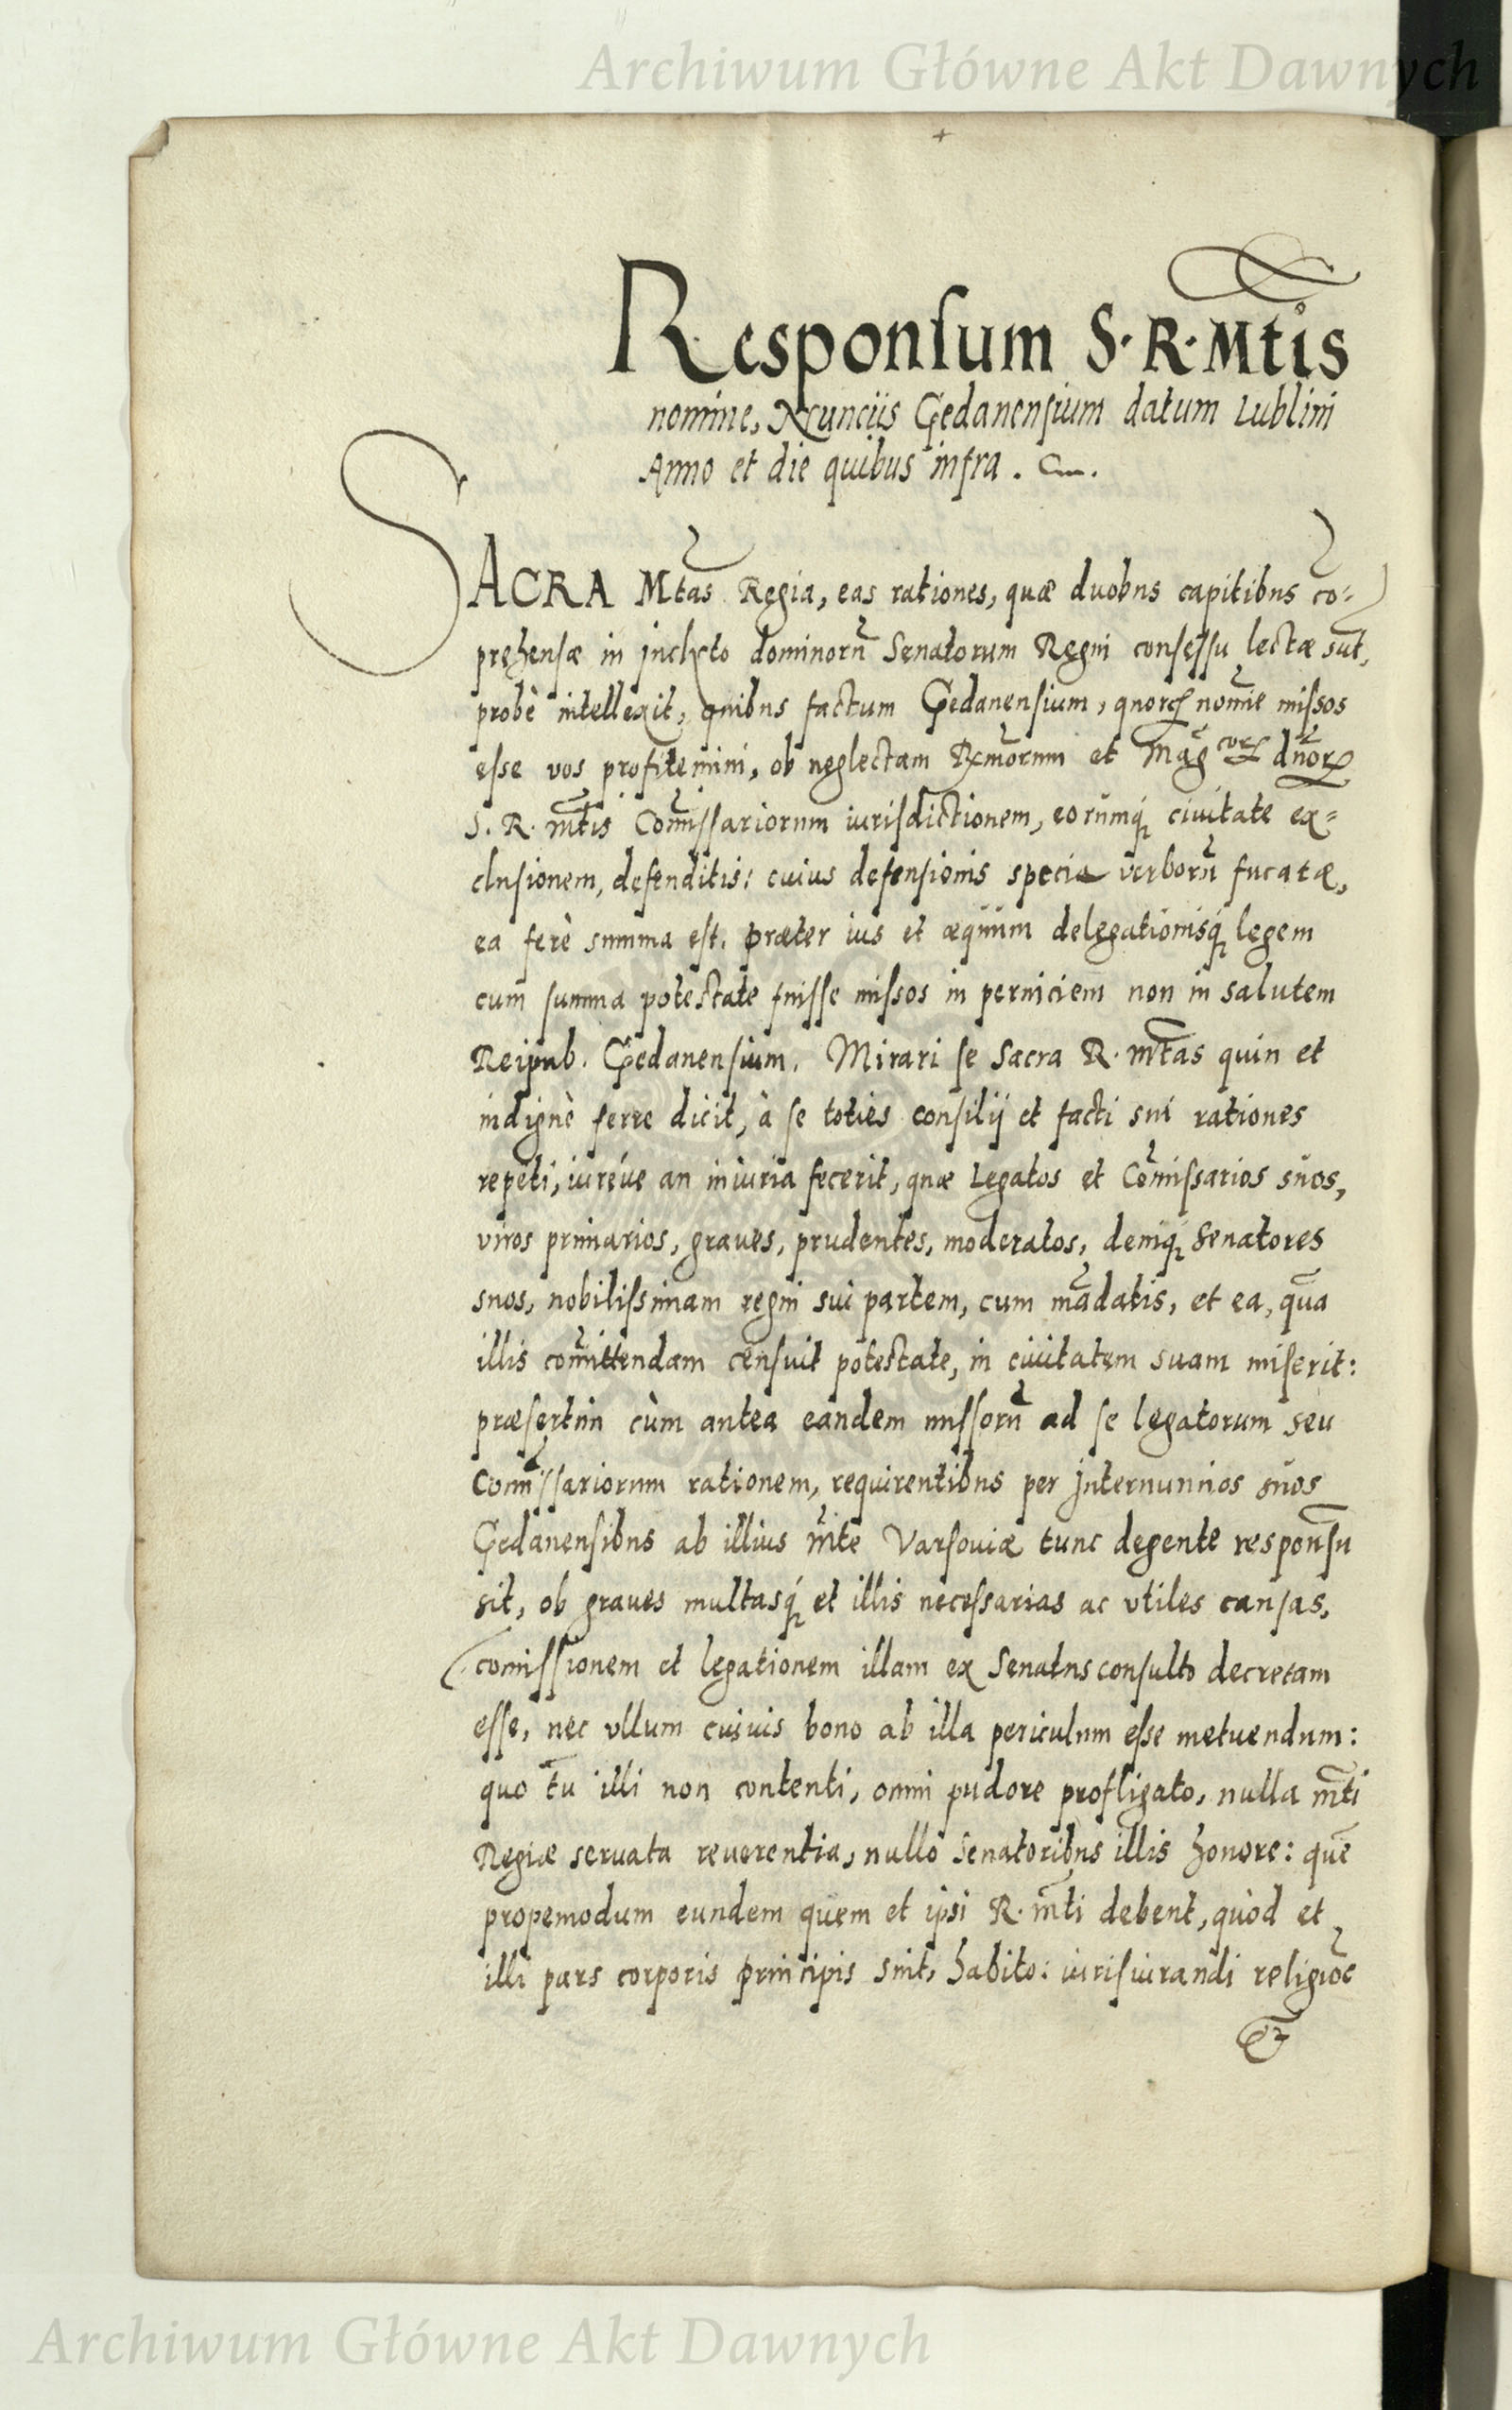 Archiwum Główne Akt Dawnych
Responsum S·R·Mtis
nomine, Nunciis Gedanensium datum Lublini
Anno et die quibus infra.
SACRA Mtas Regia, eas rationes, quæ duobus capitibus cõ-
prehensæ in inclyto dominorũ Senatorum Regni consessu lectæ sũt,
probè intellexit, quibus factum Gedanensium, quorꝝ noĩe missos
esse vos profitemini, ob neglectam Rx̃morum et Mag͂corꝝ dñorꝝ
S. R. mtis Com̃issariorum iurisdictionem, eorumq́ꝫ ciuitate ex-
clusionem, defenditis: cuius defensionis specie verborũ fucatæ,
ea ferè summa est. præter ius et æquum delegationisq́ꝫ legem
cum summa potestate fuisse missos in perniciem non in salutem
Reipub. Gedanensium. Mirari se Sacra R. mtas quin et
indignè ferre dicit, à se toties consilij et facti sui rationes
repeti, iuréue an iniuria fecerit, quæ Legatos et Com̃issarios suos,
viros primarios, graues, prudentes, moderatos, deniqꝫ Senatores
suos, nobilissimam regni sui partem, cum mãdatis, et ea, quã
illis com̃ittendam censuit potestate, in ciuitatem suam miserit:
præsertim cùm antea eandem missorũ ad se legatorum seu
Com̃issariorum rationem, requirentibus per Internuncios suos
Gedanensibus ab illius mt̃e Varsouiæ tunc degente responsũ
sit, ob graues multasq́ꝫ et illis necessarias ac vtiles causas,
comissionem et legationem illam ex Senatusconsulto decretam
esse, nec vllum cuiuis bono ab illa periculum esse metuendum:
quo tñ illi non contenti, omni pudore profligato, nulla mt̃i
Regiæ seruata reuerentia, nullo Senatoribus illis honore: quẽ
propemodum eundem quem et ipsi R. mt̃i debent, quòd et
illi pars corporis principis sint, habito: iurisiurandi religiõe
&
Archiwum Główne Akt Dawnych